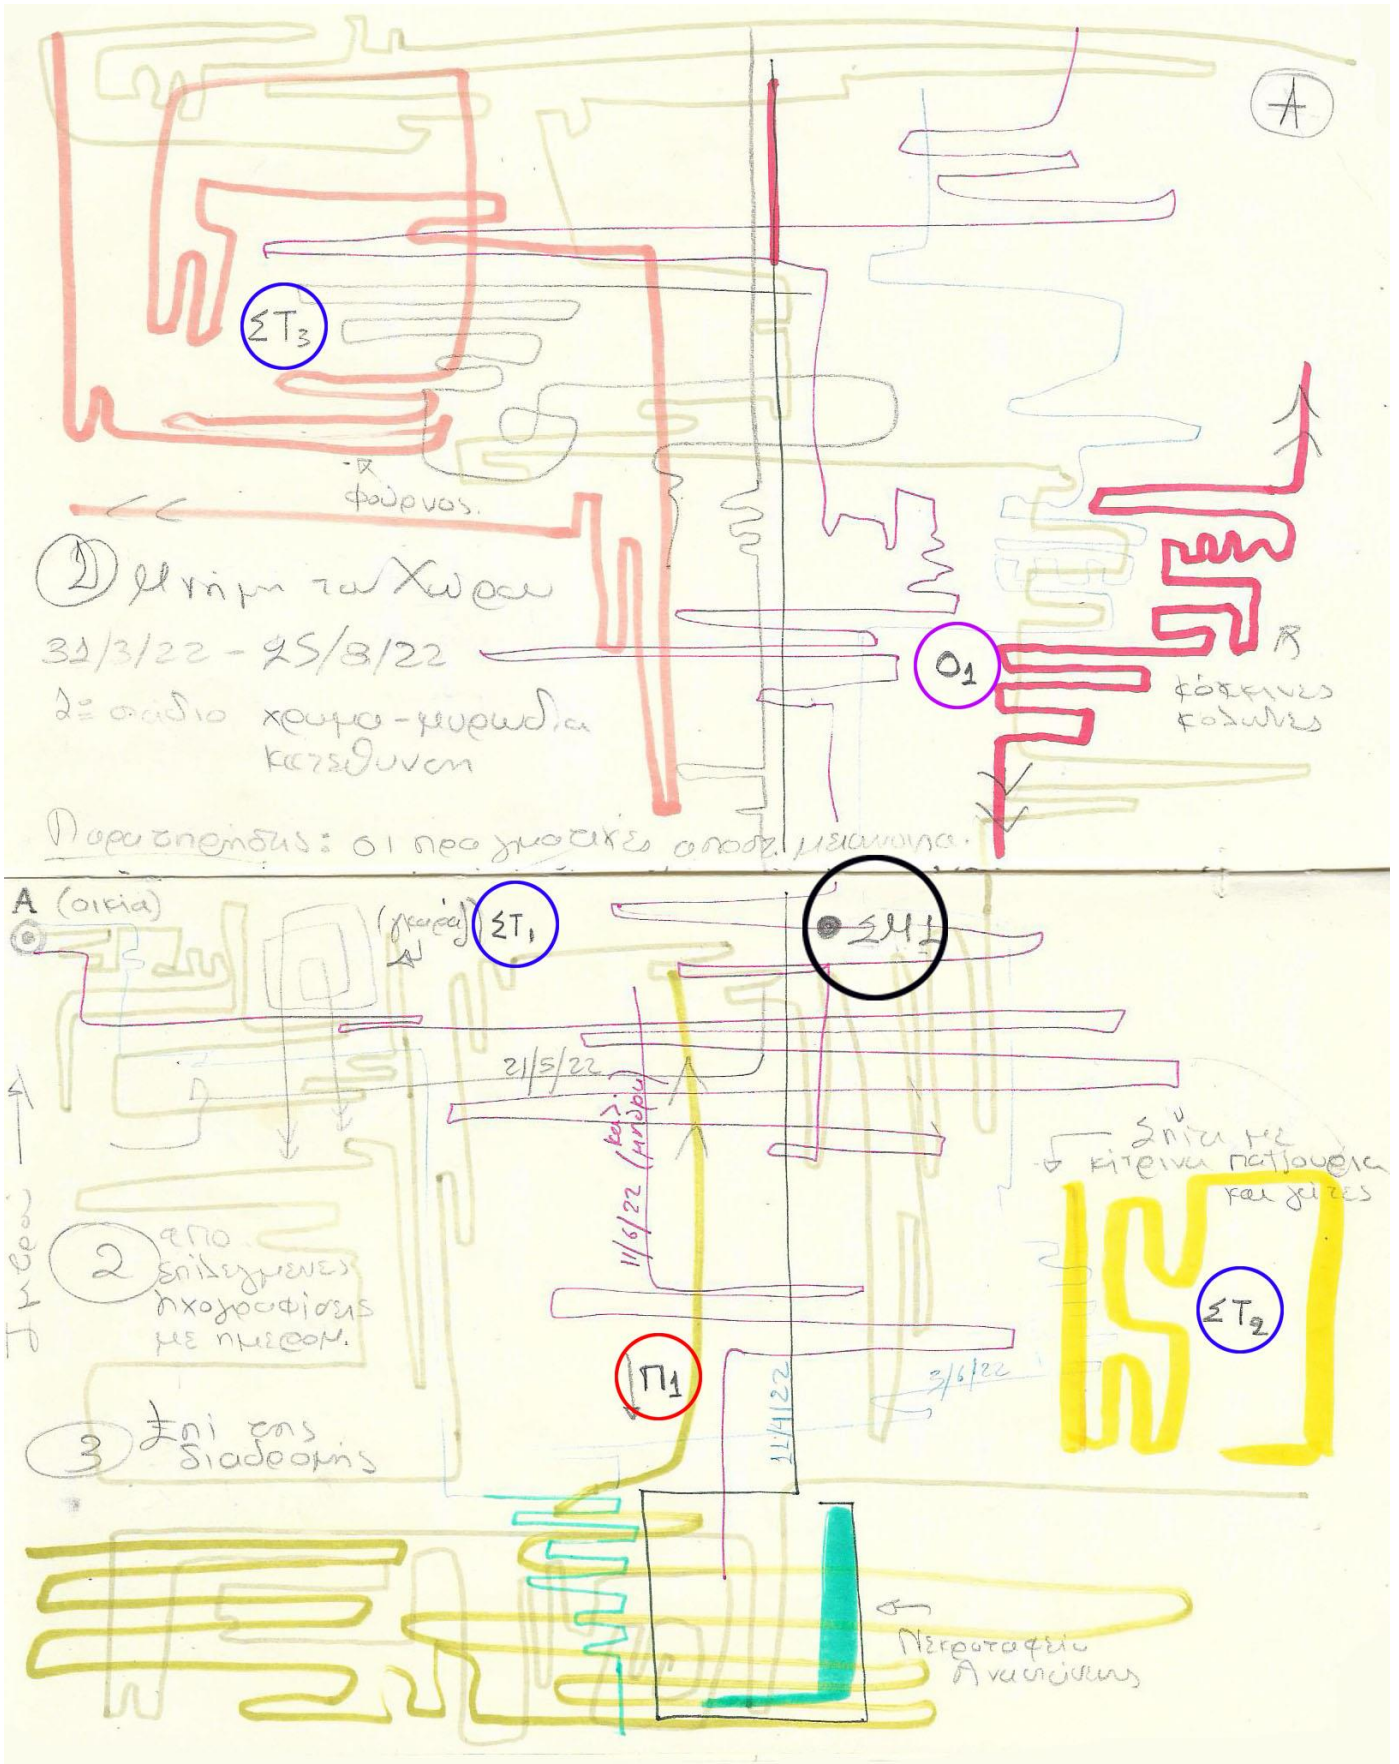 Α
ΣΤ₃
φούρνος.
① Μνήμη του Χώρου
31/3/22 - 15/8/22
1º στάδιο χρώμα-μυρωδιά
κατεύθυνση
Ο₁
κόκκινες
κολώνες
Παρατηρήσεις: οι πραγματικές αποστ.
Α (οικία)
(γκαράζ)
ΣΤ₁
ΣΜ1
21/5/22
11/6/22 (καλ.
(μπύρα)
Σπίτι με
κίτρινα πατζούρια
και γάτες
② από
επιλεγμένες
ηχογραφίσεις
με ημερομ.
ΣΤ₂
Π₁
3/6/22
11/4/22
③ Επί της
διαδρομής
Νεκροταφείο
Αναστάσεως